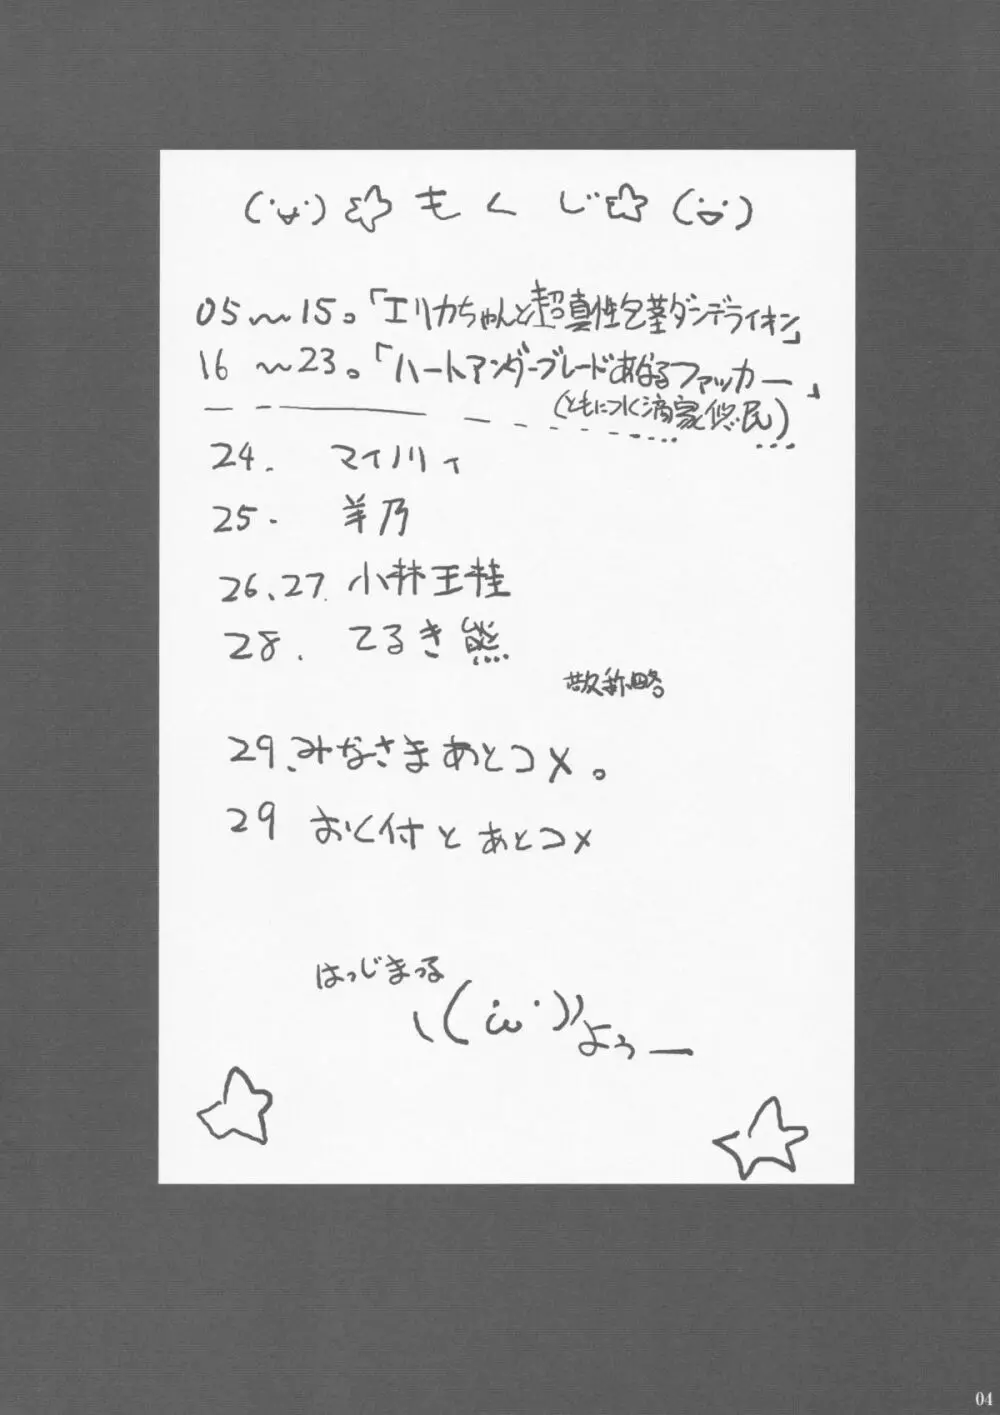 ('ᴗ')☆もくじ☆('ᗜ')
05〜15。「エリカちゃんと超真性包茎ダンデライオン」
16〜23。「ハートアンダーブレードあなるファッカー」
(ともに水滴家悠民)
24. マイノリィ
25. 羊乃
26、27. 小林王桂
28. てるき熊
敬称略
29、みなさまあとコメ。
29 おく付とあとコメ
はっじまっる
\(´ω`))よぅー
04